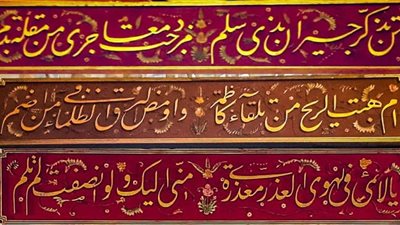 من تذكر جيران بذي سلم مزجت دمعا جرى من مقلة بدم
ام هبت الريح من تلقاء كاظمة واومض البرق في الظلماء من اضم
يا لائمي في الهوى العذري معذرة مني اليك ولو انصفت لم تلم